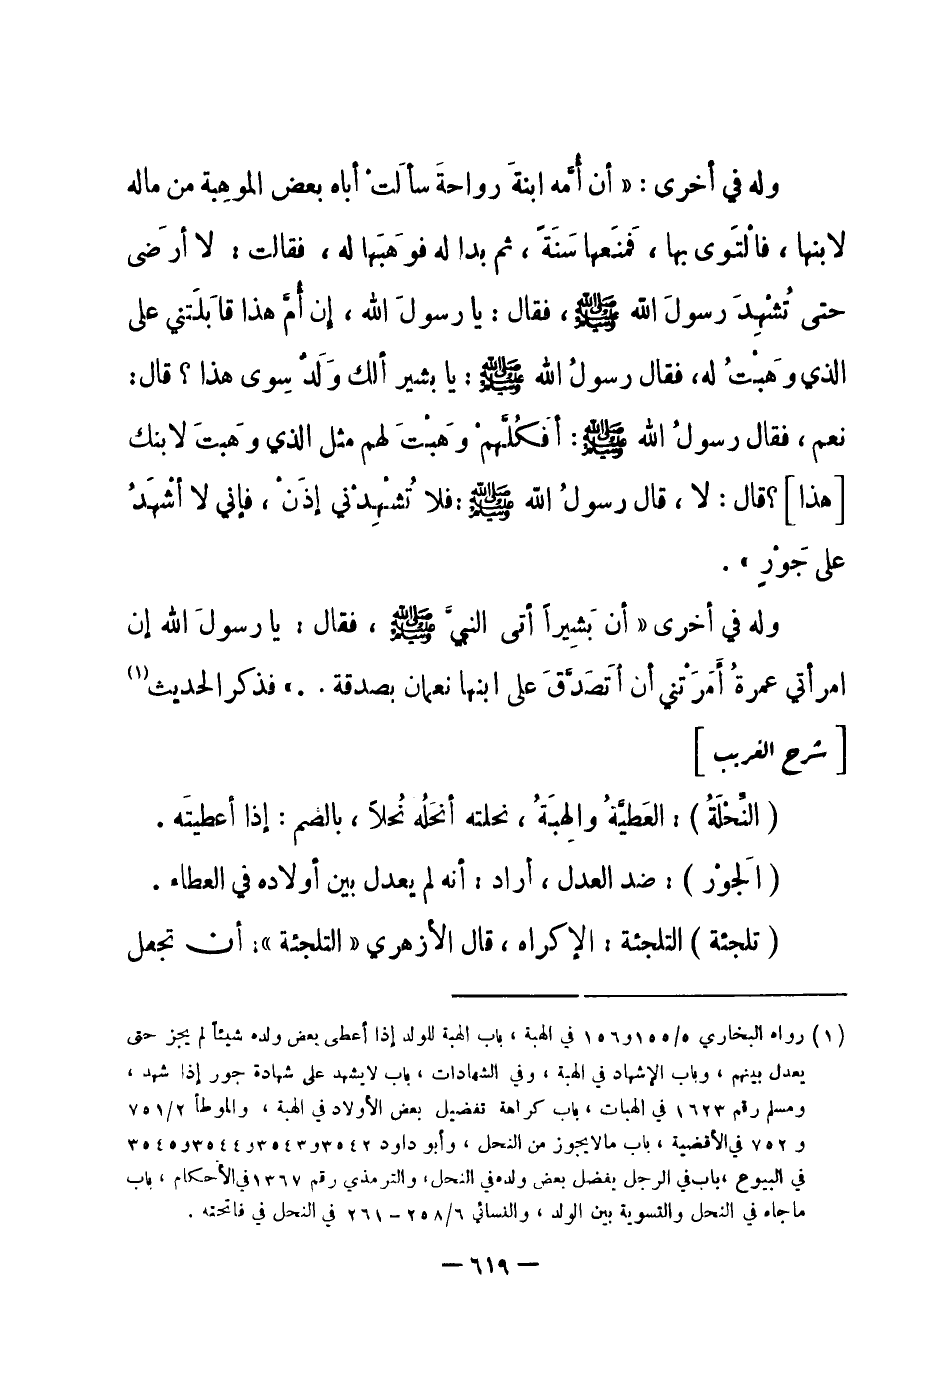 وله في أخرى : « أن أُمَّه ابنةَ رواحةَ سألَتْ أباه بعض الموهِبة من ماله
لابنها ، فالْتَوى بها ، فمنَعها سَنَةً ، ثم بدا له فوهَبَها له ، فقالت : لا أرضَى
حتى تُشْهِدَ رسولَ الله ﷺ ، فقال : يا رسولَ الله ، إن أُمَّ هذا قابلَتني على
الذي وهَبْتُ له، فقال رسولُ الله ﷺ : يا بشير ألك وَلَدٌ سِوى هذا ؟ قال:
نعم ، فقال رسولُ الله ﷺ : أفَكُلَّهمْ وهَبْتَ لهم مثل الذي وهَبتَ لابنك
[هذا] ؟ قال : لا ، قال رسولُ الله ﷺ :فلا تُشْهِدْني إذَنْ ، فإني لا أشْهَدُ
على جَوْرٍ » .
وله في أخرى « أن بَشِيراً أتى النبيَّ ﷺ ، فقال : يا رسولَ الله إن
امرأتي عمرةُ أَمَرَتْني أن أتَصَدَّقَ على ابنها نعمان بصدقة . .» فذكر الحديث(١)
[ شرح الغريب ]
( النِّحْلَةُ ) : العَطيَّةُ والهِبَةُ ، نحلته أنحَلُه نُحلاً ، بالضم : إذا أعطيتَه .
( الجَوْر ) : ضد العدل ، أراد : أنه لم يعدل بين أولاده في العطاء .
( تلجئة ) التلجئة : الإكراه ، قال الأزهري « التلجئة »: أن تجعل
(١) رواه البخاري ٥/١٥٥ و١٥٦ في الهبة ، باب الهبة للولد إذا أعطى بعض ولده شيئاً لم يجز حتى
يعدل بينهم ، وباب الإشهاد في الهبة ، وفي الشهادات ، باب لايشهد على شهادة جور إذا شهد ،
ومسلم رقم ١٦٢٣ في الهبات ، باب كراهة تفضيل بعض الأولاد في الهبة ، والموطأ ٧٥١/٢
و ٧٥٢ في الأقضية ، باب مالايجوز من النحل ، وأبو داود ٣٥٤٢ و٣٥٤٣ و٣٥٤٤ و٣٥٤٥
في البيوع ، باب في الرجل يفضل بعض ولده في النحل، والترمذي رقم ١٣٦٧ في الأحكام ، باب
ماجاء في النحل والتسوية بين الولد ، والنسائي ٢٥٨/٦ – ٢٦١ في النحل في فاتحته .
— ٦١٩ —